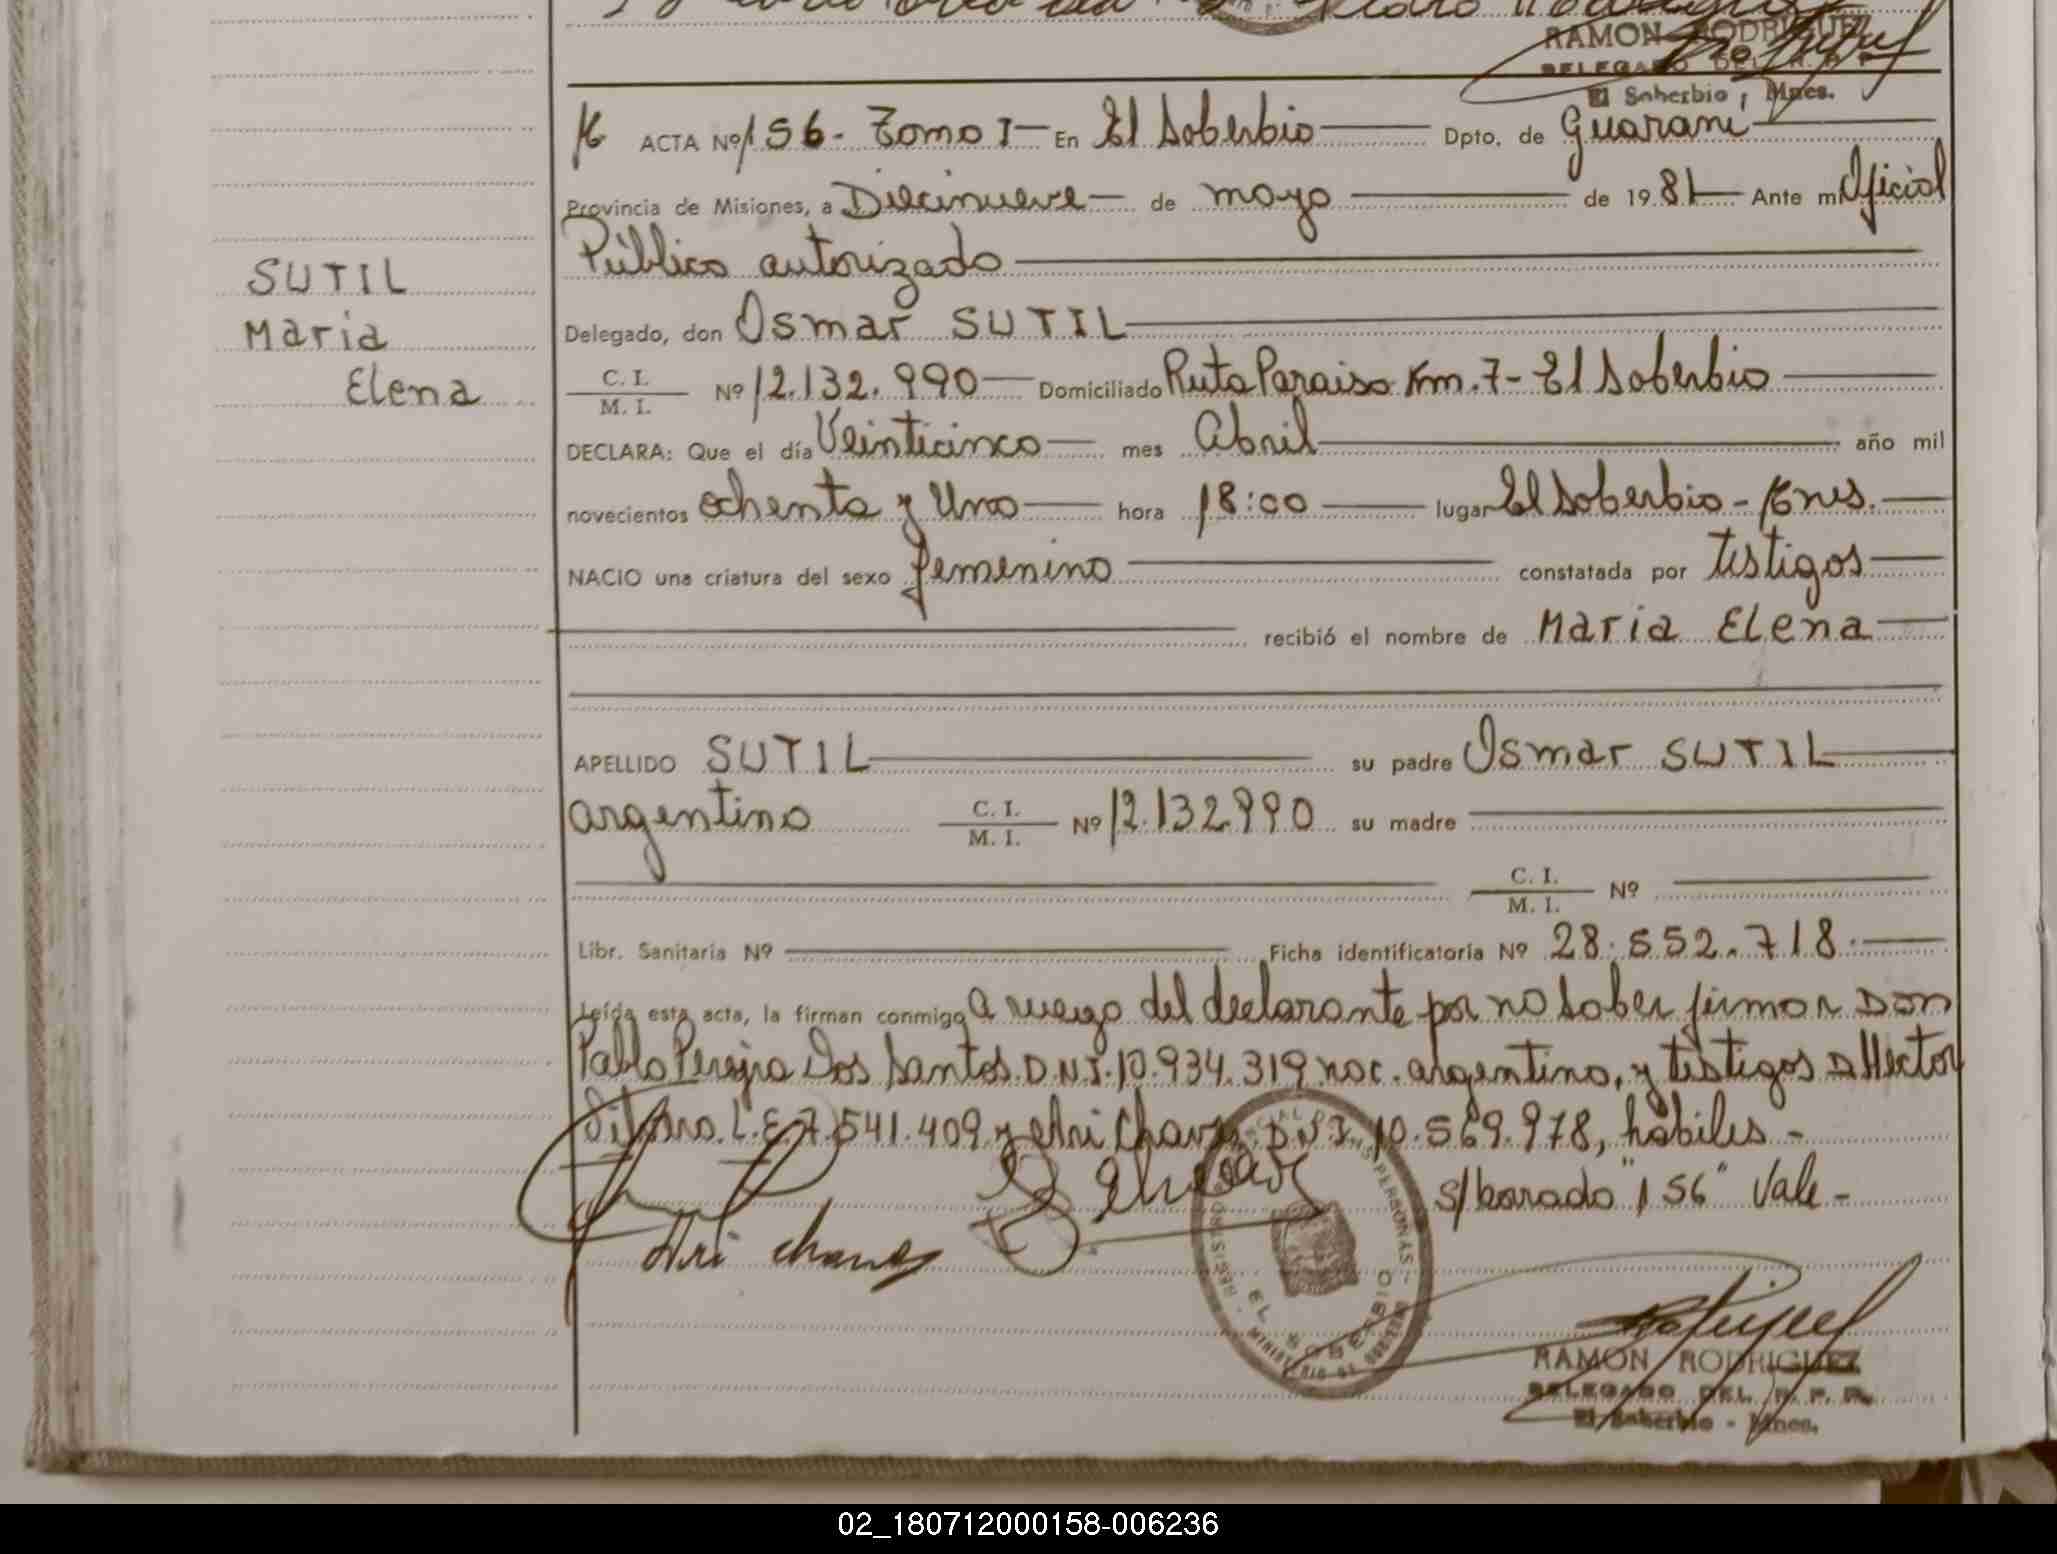 RAMON RODRIGUEZ
DELEGADO DEL R. P. P.
El Soberbio, Mnes.
ACTA Nº 156.- Tomo I En El Soberbio Dpto. de Guaraní
Provincia de Misiones, a Diecinueve de mayo de 1981 Ante mi Oficial
Público autorizado
SUTIL
Maria
Elena
Delegado, don Osmar SUTIL
C. I. / M. I. Nº 12.132.990 Domiciliado Ruta Paraiso Km. 7 - El Soberbio
DECLARA: Que el día Veinticinco mes Abril año mil
novecientos ochenta y Uno hora 18:00 lugar El Soberbio - Mnes.
NACIO una criatura del sexo femenino constatada por testigos
recibió el nombre de Maria Elena
APELLIDO SUTIL su padre Osmar SUTIL
argentino C. I. / M. I. Nº 12.132.990 su madre
C. I. / M. I. Nº
Libr. Sanitaria Nº Ficha identificatoria Nº 28.552.718.
Leída esta acta, la firman conmigo a ruego del declarante por no saber firmar Don
Pablo Pereira Dos Santos D.N.I. 10.934.319 nac. argentino, y testigos D Hector
L.E. 7.541.409 y Ari Chaves D.N.I. 10.569.978, hábiles -
s/borado "156" Vale -
Ari chaves
EL SOBERBIO
RAMON RODRIGUEZ
DELEGADO DEL R. P. P.
El Soberbio - Mnes.
02_180712000158-006236